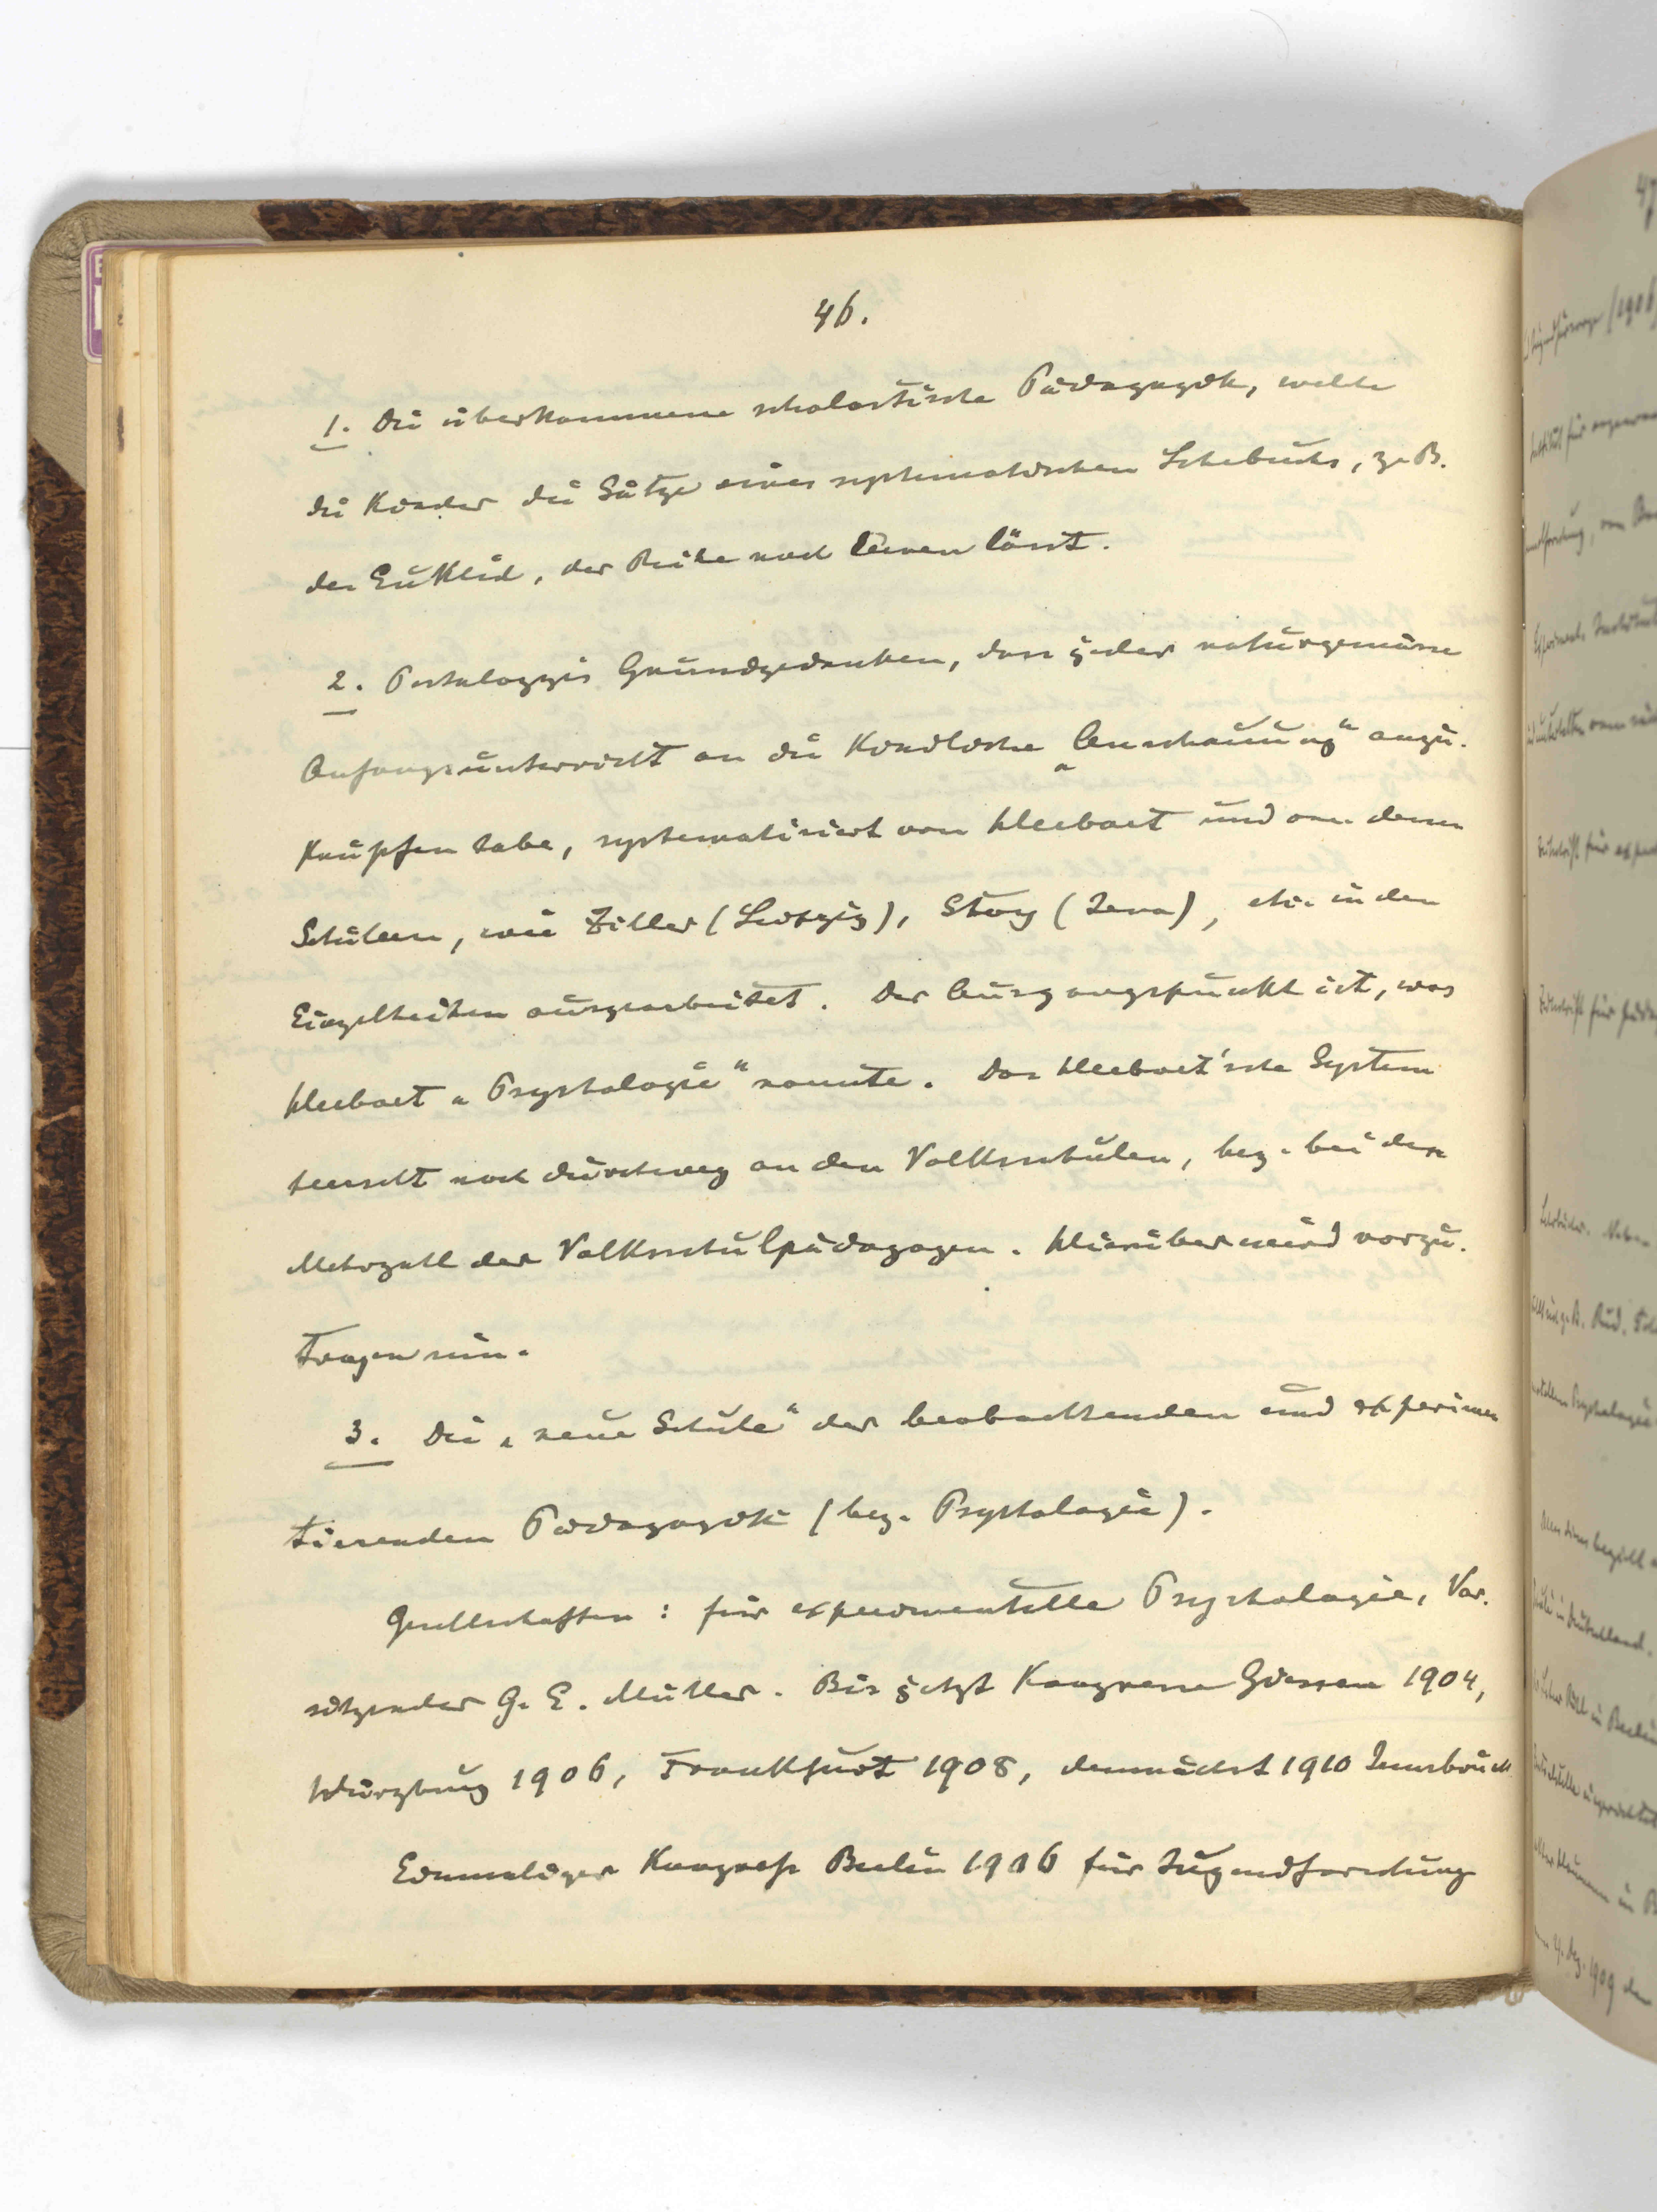 46.
1. Die überkommene scholastische Pädagogik, welche
die Kinder die Sätze eines systematischen Lehrbuchs, z. B.
des Euklid, der Reihe nach lernen lässt.
2. Pestalozzis Grundgedanken, dass jeder naturgemässe
Anfangsunterricht an die kindliche „Anschauung“ anzu-
knüpfen habe, systematisiert von Herbart und von dessen
Schülern, wie Ziller (Leipzig), Stoy (Jena), etc. in den
Einzelheiten ausgearbeitet. Der Ausgangspunkt ist, was
Herbart „Psychologie“ nannte. Das Herbart'sche System
herrscht noch durchweg an den Volksschulen, bez. bei der
Mehrzahl der Volksschulpädagogen. Hierüber wird vorzu-
tragen sein.
3. Die „neue Schule“ der beobachtenden und experimen
tierenden Pädagogik (bez. Psychologie).
Gesellschaften: für experimentelle Psychologie, Vor-
sitzender G. E. Müller. Bis jetzt Kongresse Giessen 1904,
Würzburg 1906, Frankfurt 1908, demnächst 1910 Innsbruck
Einmaliger Kongress Berlin 1906 für Jugendforschung
47